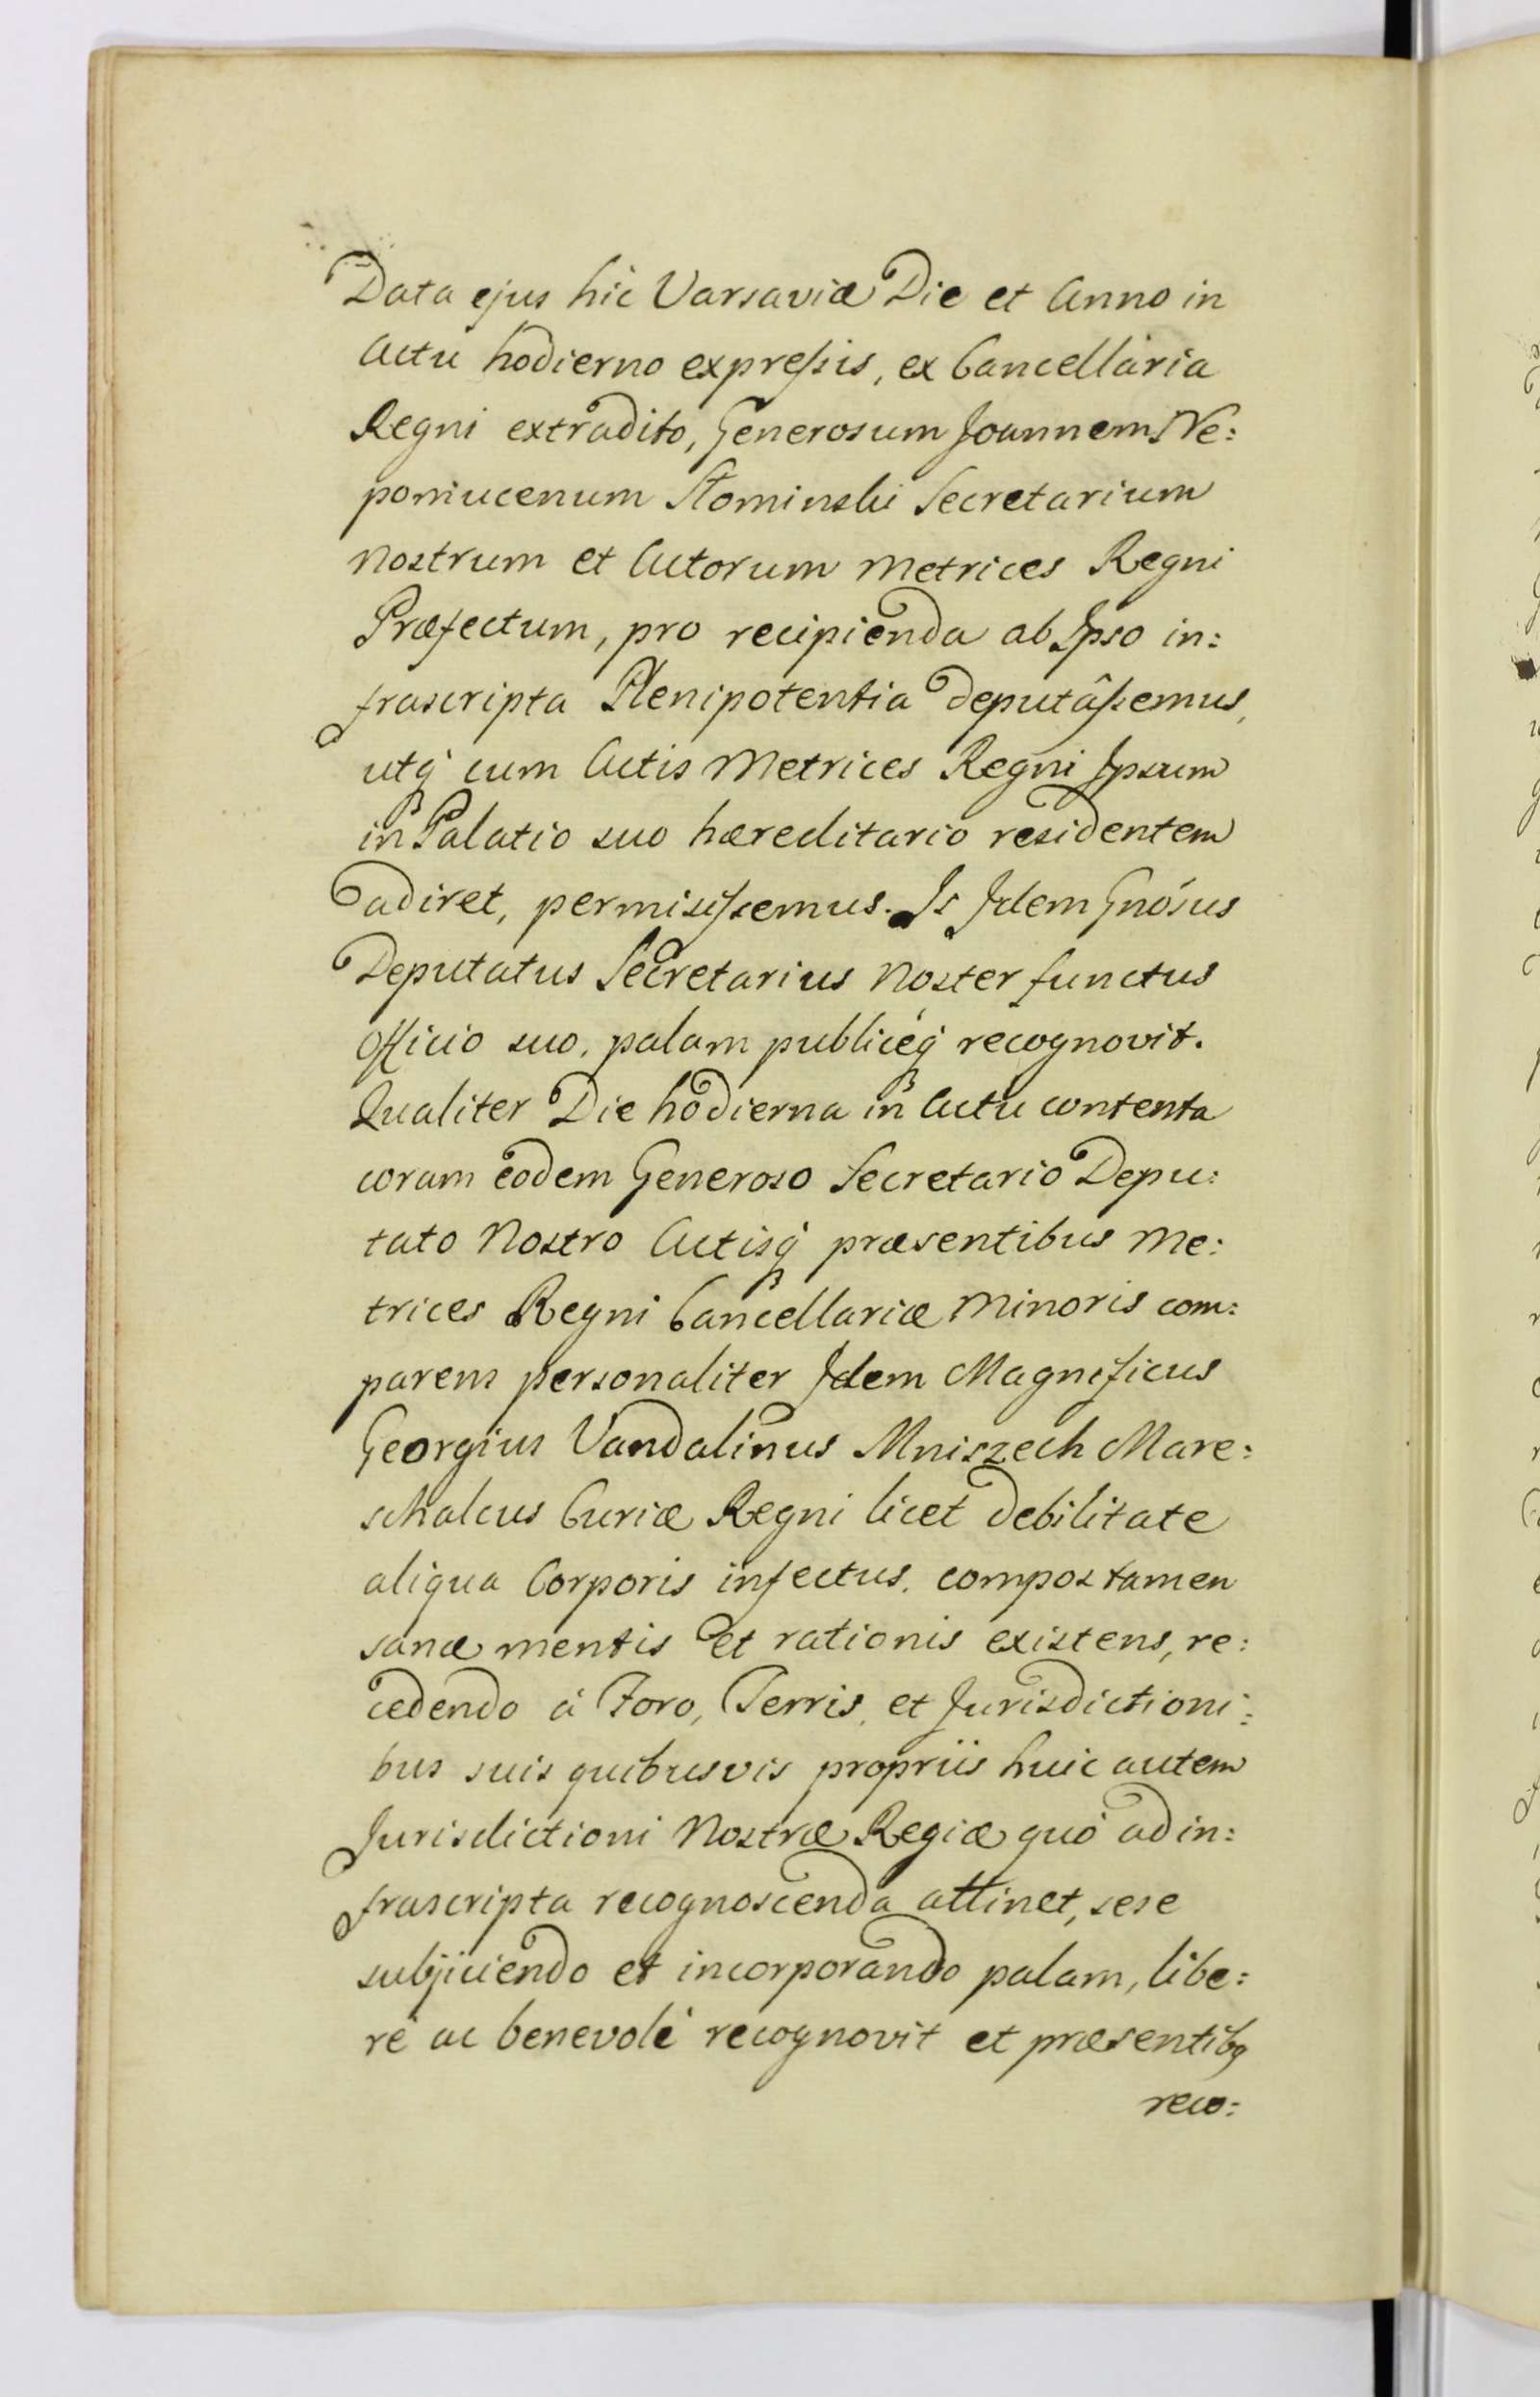 Data ejus hic Varsaviæ Die et Anno in
Actu hodierno expreſsis, ex Cancellaria
Regni extradito, Generosum Joannem Ne:
pomucenum Słominski Secretarium
Nostrum et Actorum Metrices Regni
Præfectum, pro recipienda ab Ipso in:
frascripta Plenipotentia deputâſsemus,
utq cum Actis Metrices Regni Ipsum
in Palatio suo hæreditario residentem
adiret, permisiſsemus. Is Idem Gnósus
Deputatus Secretarius Noster functus
officio suo, palam publicéq recognovit.
Qualiter Die hodierna in Actu contenta
coram eodem Generoso Secretario Depu:
tato Nostro Actisq præsentibus Me:
trices Regni Cancellariæ Minoris com:
parens personaliter Idem Magnificus
Georgius Vandalinus Mniszech Mare:
schalcus Curiæ Regni licet debilitate
aliqua Corporis infectus, compos tamen
sanæ mentis et rationis existens, re:
cedendo á Foro, Terris, et Jurisdictioni:
bus suis quibusvis propriis huic autem
Jurisdictioni Nostræ Regiæ quó ad in:
frascripta recognoscenda attinet, sese
subjiciendo et incorporando palam, libe:
ré ac benevolé recognovit et præsentibq
reco: